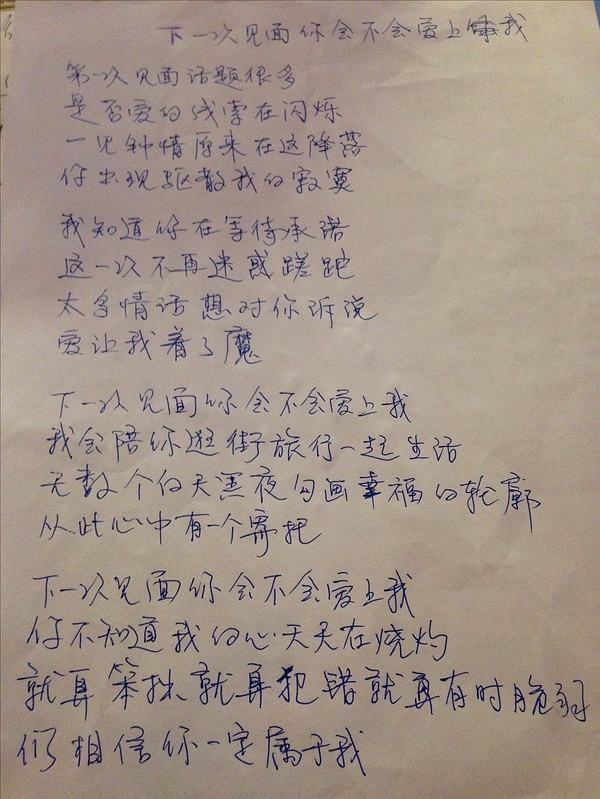 下一次见面你会不会爱上我
第一次见面话题很多
是否爱的线索在闪烁
一见钟情原来在这降落
你出现驱散我的寂寞
我知道你在等待承诺
这一次不再迷惑蹉跎
太多情话想对你诉说
爱让我着了魔
下一次见面你会不会爱上我
我会陪你逛街旅行一起生活
无数个白天黑夜勾画幸福的轮廓
从此心中有一个寄托
下一次见面你会不会爱上我
你不知道我的心天天在烧灼
就算笨拙就算犯错就算有时脆弱
仍相信你一定属于我